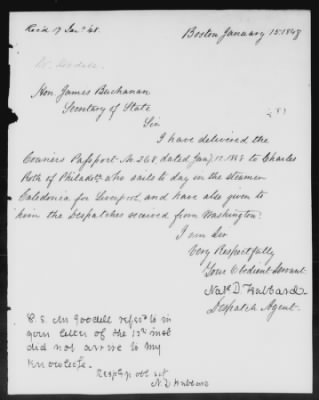 Recd 17 Jany 48.
Boston January 15 1848
Hon James Buchanan
Secretary of State
Sir
I have delivered the
Couriers Passport No 268, dated Jany 12. 1848 to Charles
Roth of Philadela who sails to day in the steamer
Caledonia for Liverpool, and have also given to
him the Despatches received from Washington.
I am Sir
Very Respectfully
Your Obedient Servant
Natl D Hubbard
Despatch Agent.
P.S. Mr Goodell refered to in
your letter of the 12th inst
did not arrive to my
knowledge.
Respy obt svt
N D Hubbard